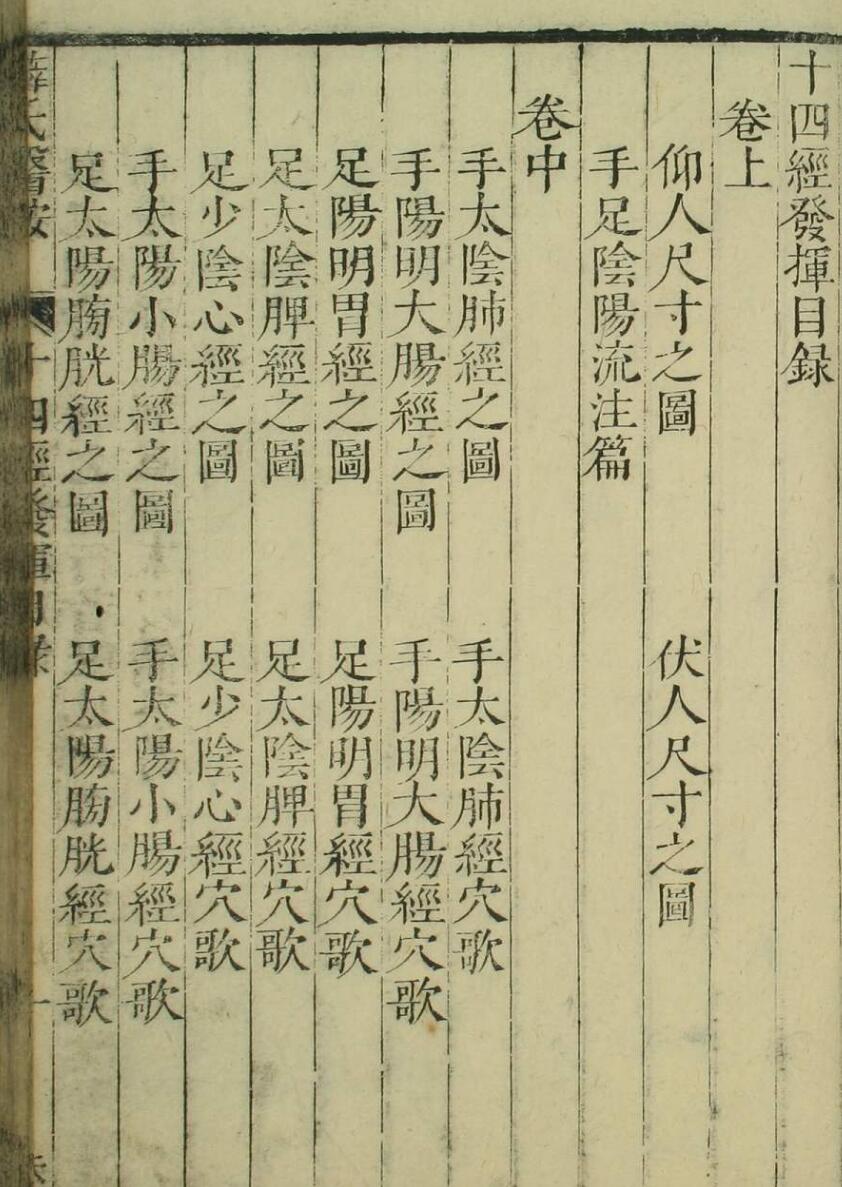 十四經發揮目録
卷上
仰人尺寸之圖 伏人尺寸之圖
手足陰陽流注篇
卷中
手太陰肺經之圖 手太陰肺經穴歌
手陽明大腸經之圖 手陽明大腸經穴歌
足陽明胃經之圖 足陽明胃經穴歌
足太陰脾經之圖 足太陰脾經穴歌
足少陰心經之圖 足少陰心經穴歌
手太陽小腸經之圖 手太陽小腸經穴歌
足太陽膀胱經之圖 足太陽膀胱經穴歌
薛氏醫按 十四經發揮目録 一